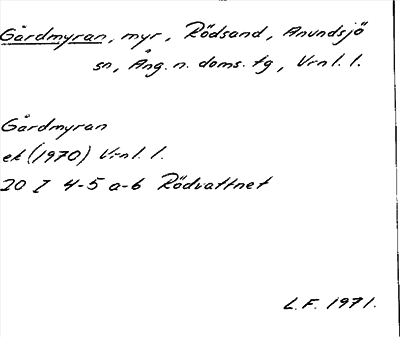 Gårdmyran, myr, Rödsand, Anundsjö
sn, Ång. n. doms. tg, Vrnl. l.
Gårdmyran
ek (1970) Vrnl. l.
20 I 4-5 a-b Rödvattnet
L.F. 1971.